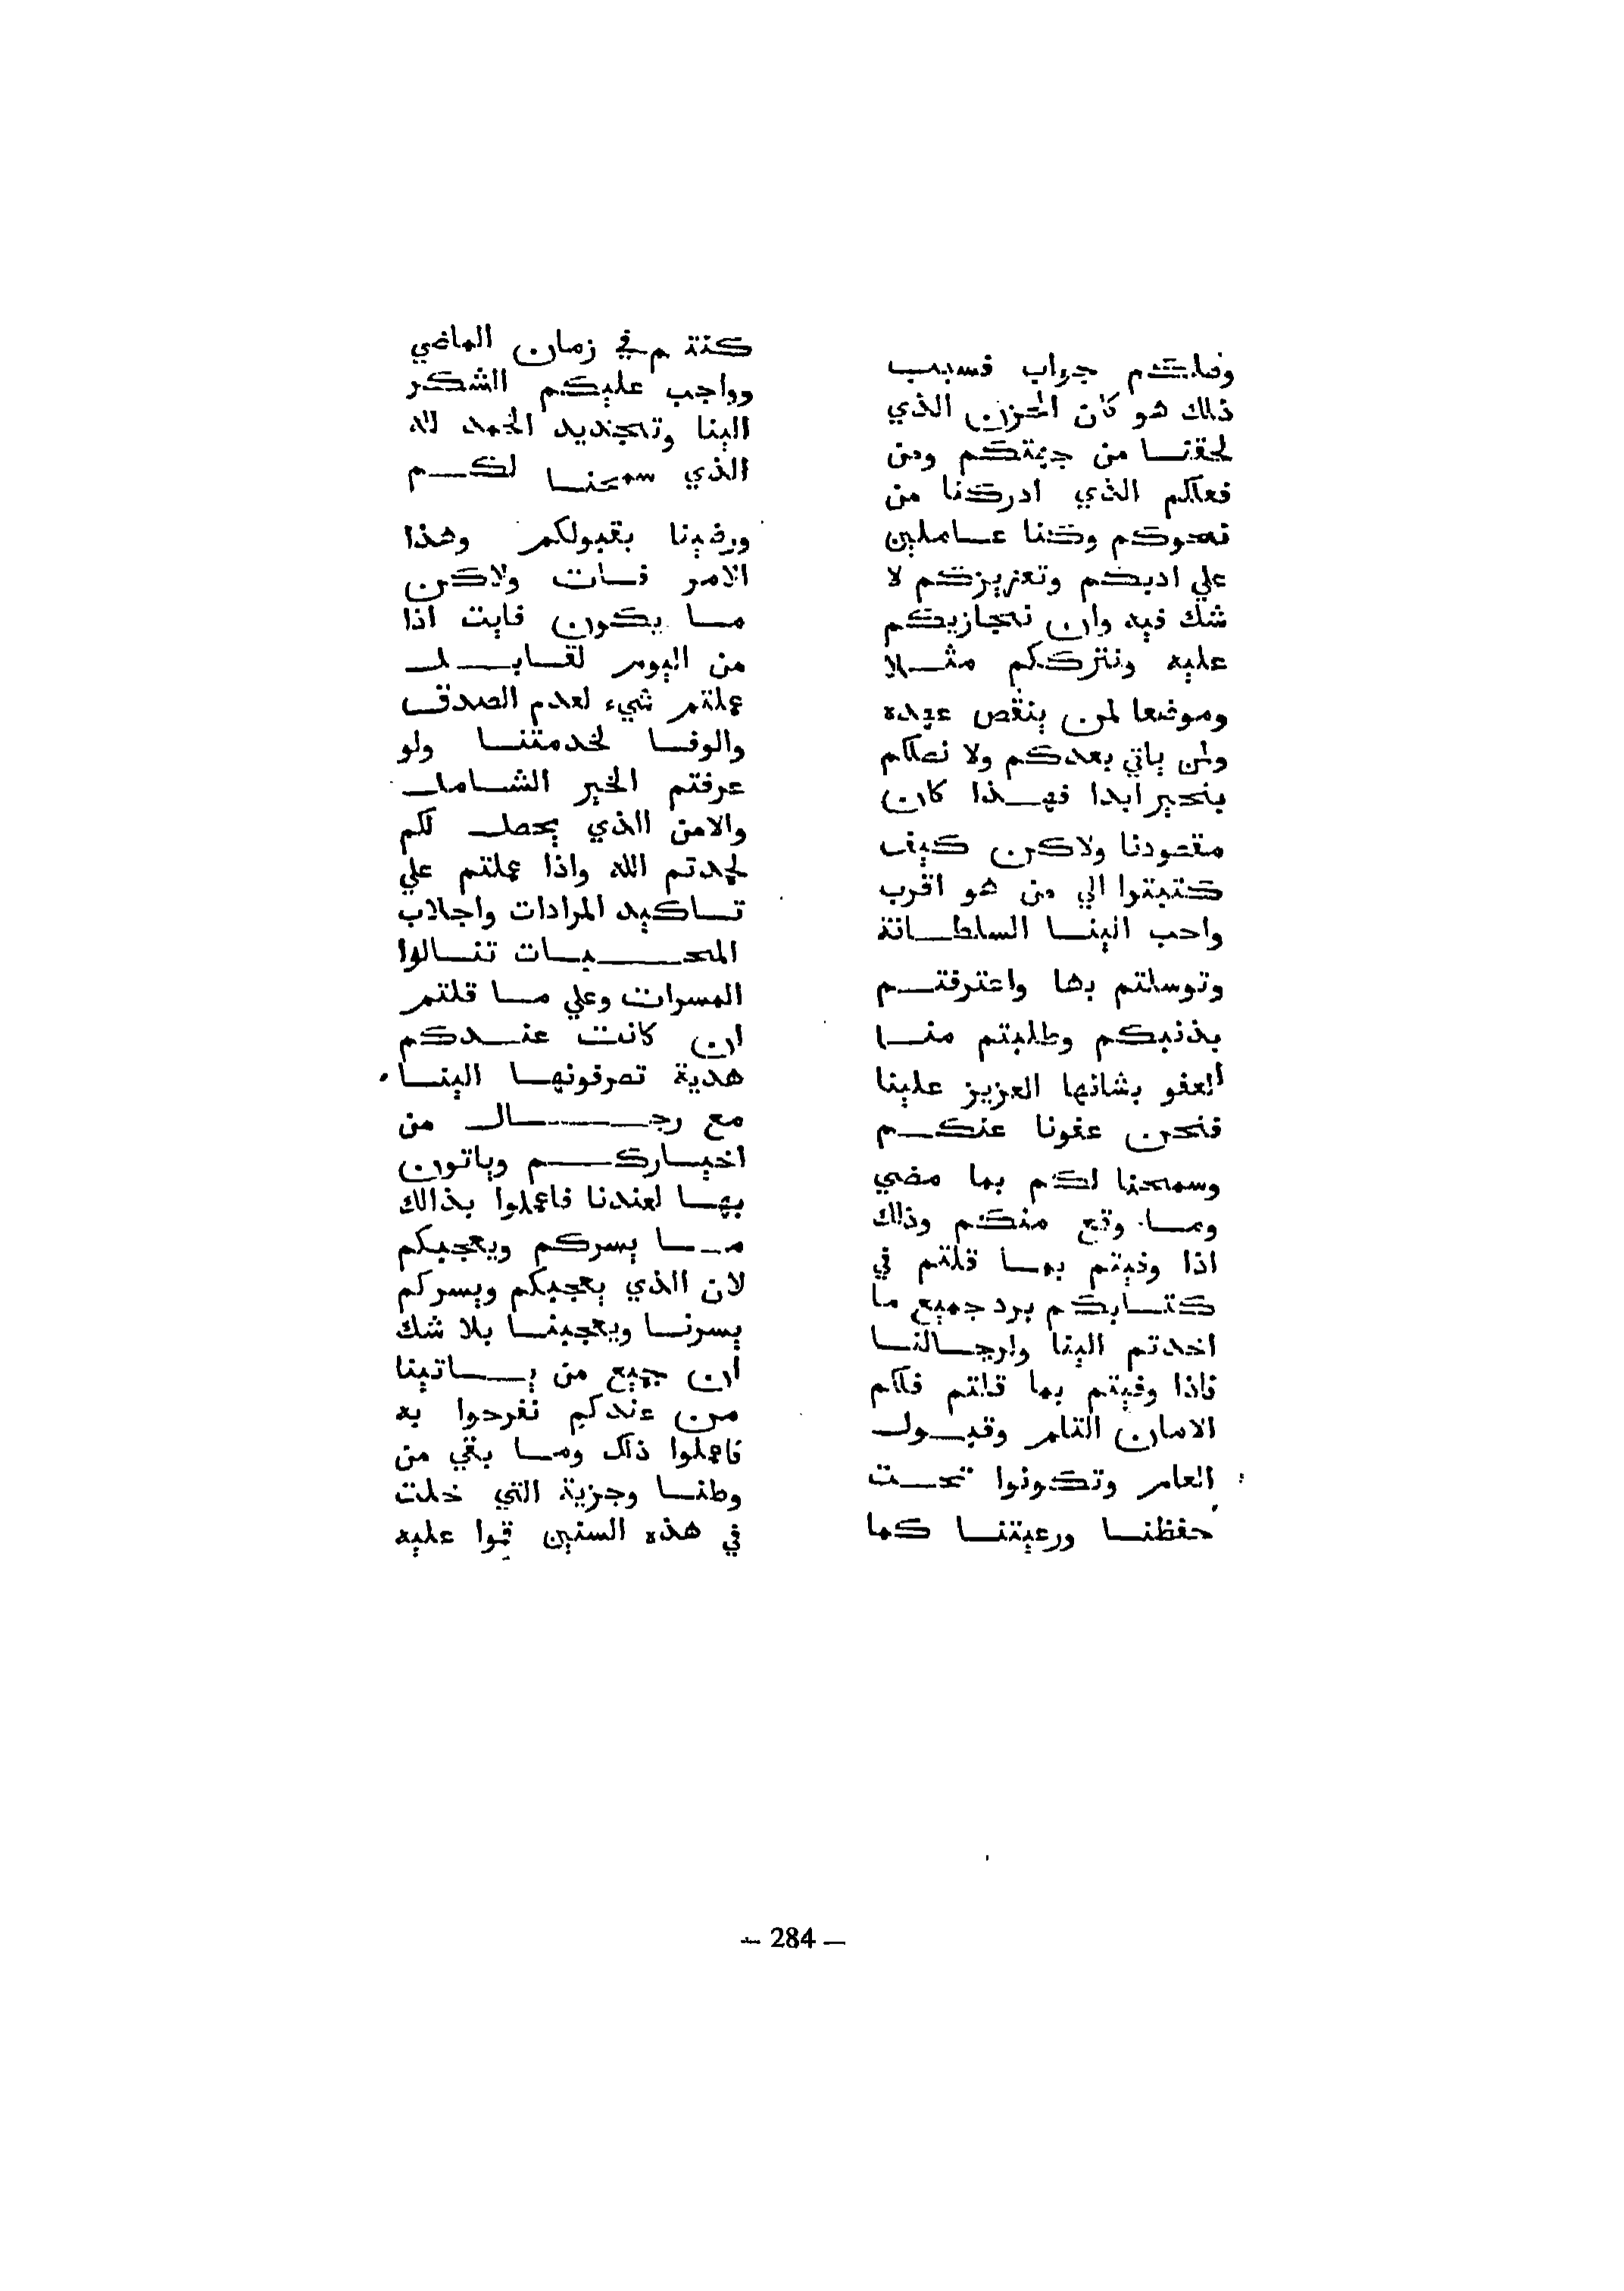 وصلكم جواب فسبب
ذلك هو كان الحزن الذي
لحقنا من جهتكم ومن
فعلكم الذي ادركنا من
نحوكم وكنا عاملين
علي ادبكم وتعزيزكم لا
شك فيه وان نجازيكم
عليه ونترككم مثلا
وموضعا لمن ينقص عهده
ولمن ياتي بعدكم ولا نصلكم
بخير ابدا فهذا كان
مقصودنا ولاكن كيف
كتبتوا الي من هو اقرب
واحب الينا السلطانة
وتوسلتم بها واعترفتم
بذنبكم وطلبتم منا
العفو بشانها العزيز علينا
فنحن عفونا عنكم
وسمحنا لكم بما مضي
وما وقع منكم وذلك
اذا وفيتم بما قلتم في
كتابكم برد جميع ما
اخدتم الينا ولرجالنا
فاذا وفيتم بما قلتم فلكم
الامان التام وقبول
العام وتكونوا تحت
حفظنا ورعيتنا كما
كنتم في زمان الماضي
وواجب عليكم الشكر
الينا وتجديد الحمد لله
الذي سمحنا لكم
ورضينا بقبولكم وهذا
الامر فات ولاكن
ما يكون فايت اذا
من اليوم لقابل
عملتم شيء لعدم الصدق
والوفا لخدمتنا ولو
عرفتم الخير الشامل
والامن الذي يحصل لكم
لحمدتم الله واذا عملتم علي
تاكيد المرادات واجلاب
المحبات تنالوا
المسرات وعلي ما قلتم
ان كانت عندكم
هدية تصرفونها الينا
مع رجال من
اخياركم وياتون
بها لعندنا فاعملوا بذالك
ما يسركم ويعجبكم
لان الذي يعجبكم ويسركم
يسرنا ويعجبنا بلا شك
ان جميع من ياتينا
من عندكم نفرحوا به
فاعملوا ذلك وما بقي من
وطنا وجزية التي خلت
في هذه السنين تموا عليه
– 284 –